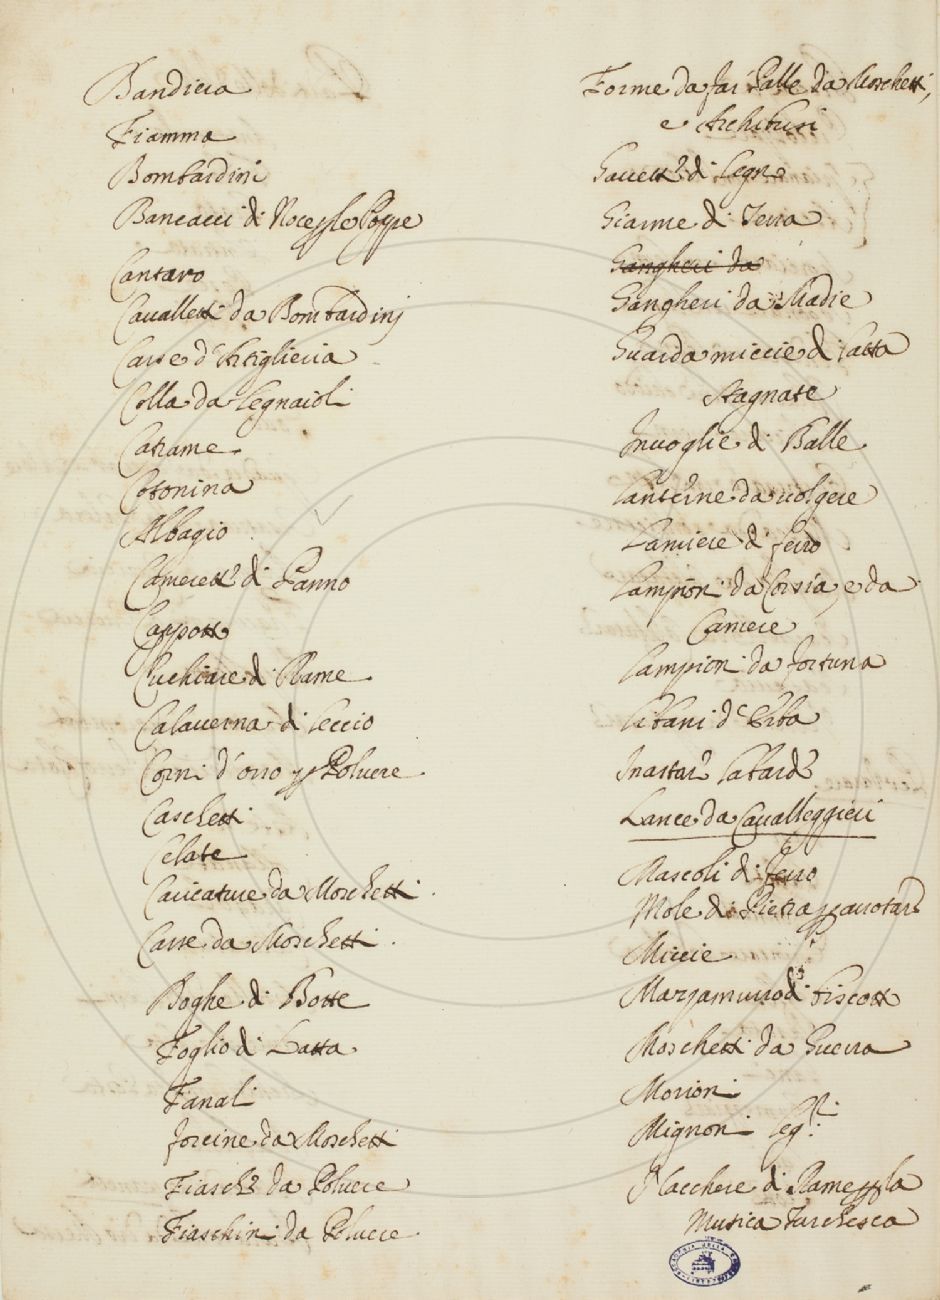 Bandiera
Fiamma
Bombardini
Bancacci di Noce p le Poppe
Cantaro
Cavalletti da Bombardinj
Casse d'Artiglieria
Colla da Legnaioli
Catrame
Cotonina
Albagio
Camerette di Panno
Cappotto
Cuchiare di Rame
Calaverna di Leccio
Corni d'osso p Polvere
Caschetti
Celate
Caricature da Moschetti
Casse da Moschetti
Doghe di Botte
Foglio di Latta
Fanali
forcine da Moschetti
Fiasche da Polvere
Fiaschini da Polvere
Forme da far Palle da Moschetti,
e Archibusi
di Legno
Giarre di Terra
Gangheri da
Gangheri da Madie
Guarda miccie di latta
stagnate
Invoglie di Balle
Lanterne da volgere
Lamiere di ferro
Lampioni da Corsia, e da
Camere
Lampioni da fortuna
Libani d'Erba
Lance da Cavalleggieri
Mascoli di ferro
Mole di Pietra p arrotare
Miccie
Mazzamurro di biscotto
Moschetti da Guerra
Morioni
Mignoni leg:
Nacchere di Rame p la
Musica Turchesca